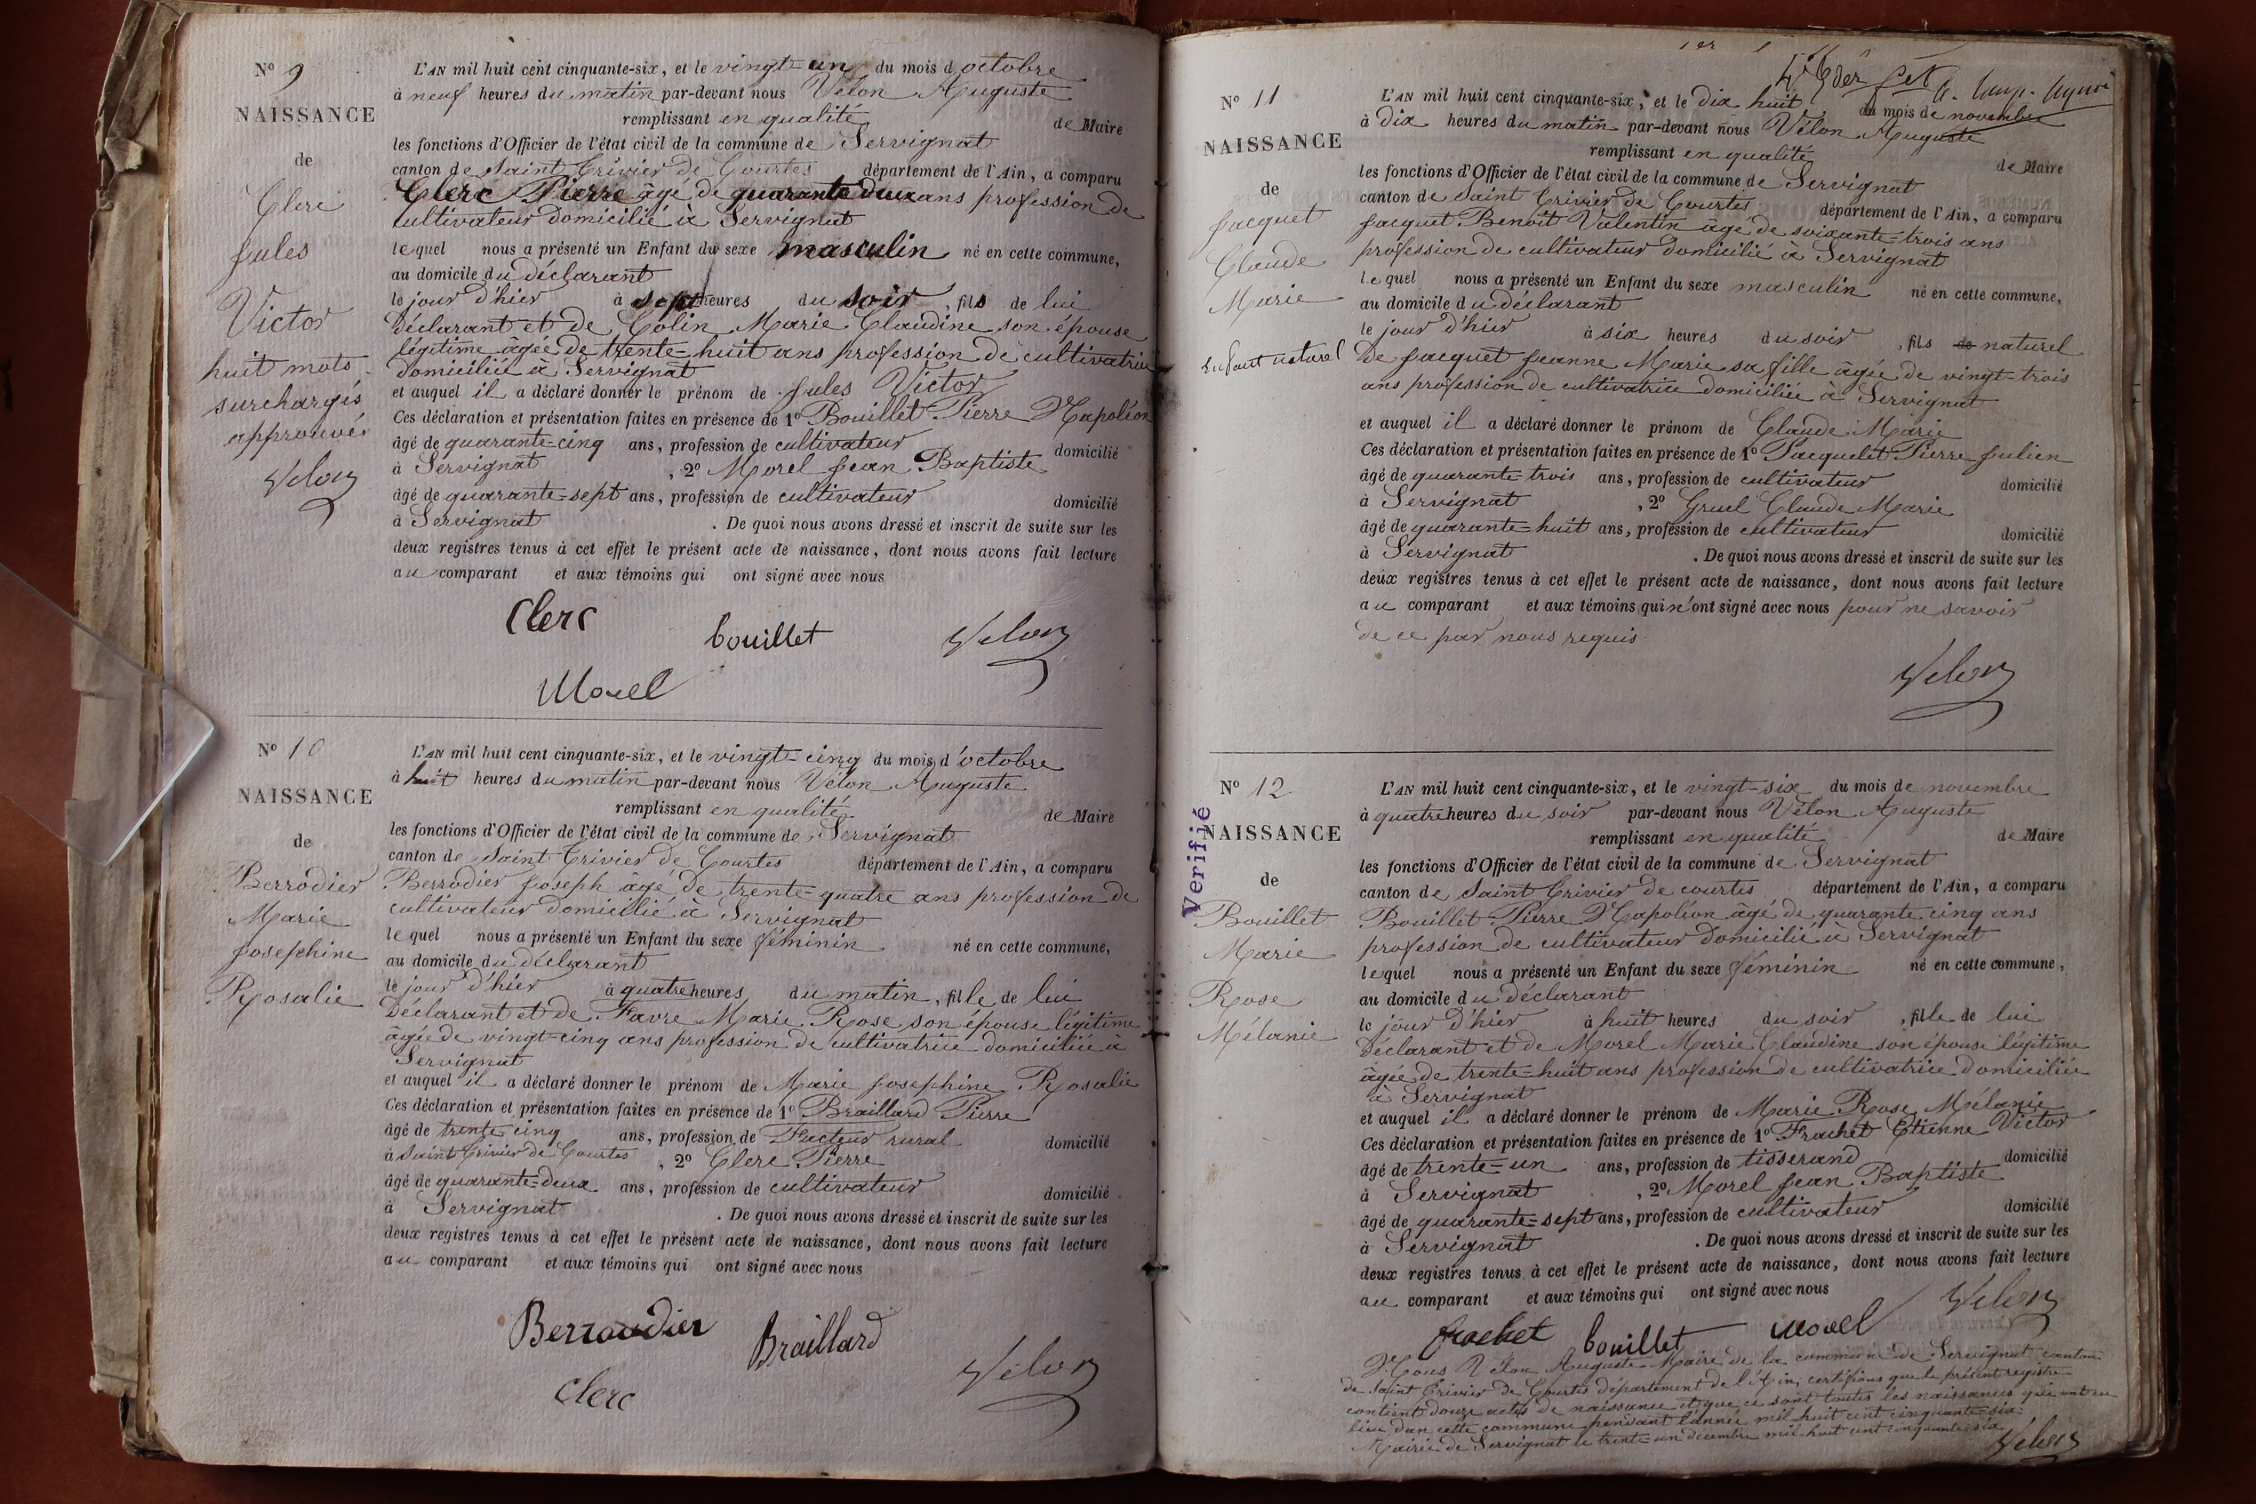 N° 9
NAISSANCE
de
Clerc
Jules
Victor
huit mots
surchargés
approuvés
Velon
L'AN mil huit cent cinquante-six, et le vingt-un du mois d'octobre
à neuf heures du matin par-devant nous Vélon Auguste
remplissant en qualité de Maire
les fonctions d'Officier de l'état civil de la commune de Servignat
canton de Saint Trivier de Courtes département de l'Ain, a comparu
Clerc Pierre âgé de quarante deux ans profession de
cultivateur domicilié à Servignat
lequel nous a présenté un Enfant du sexe masculin né en cette commune,
au domicile du déclarant
le jour d'hier à sept heures du soir, fils de lui
déclarant et de Colin Marie Claudine son épouse
légitime âgée de trente-huit ans profession de cultivatrice
domiciliée à Servignat
et auquel il a déclaré donner le prénom de Jules Victor
Ces déclaration et présentation faites en présence de 1° Bouillet Pierre Napoléon
âgé de quarante-cinq ans, profession de cultivateur domicilié
à Servignat, 2° Morel Jean Baptiste
âgé de quarante-sept ans, profession de cultivateur domicilié
à Servignat. De quoi nous avons dressé et inscrit de suite sur les
deux registres tenus à cet effet le présent acte de naissance, dont nous avons fait lecture
au comparant et aux témoins qui ont signé avec nous
Clerc
bouillet Velon
Morel
N° 10
NAISSANCE
de
Berrodier
Marie
Josephine
Rosalie
L'AN mil huit cent cinquante-six, et le vingt-cinq du mois d'octobre
à huit heures du matin par-devant nous Vélon Auguste
remplissant en qualité de Maire
les fonctions d'Officier de l'état civil de la commune de Servignat
canton de Saint Trivier de Courtes département de l'Ain, a comparu
Berrodier Joseph âgé de trente-quatre ans profession de
cultivateur domicilié à Servignat
lequel nous a présenté un Enfant du sexe féminin né en cette commune,
au domicile du déclarant
le jour d'hier à quatre heures du matin, fille de lui
déclarant et de Favre Marie Rose son épouse légitime
âgée de vingt-cinq ans profession de cultivatrice domiciliée à
Servignat
et auquel il a déclaré donner le prénom de Marie Josephine Rosalie
Ces déclaration et présentation faites en présence de 1° Braillard Pierre
âgé de trente cinq ans, profession de Facteur rural domicilié
à Saint Trivier de Courtes, 2° Clerc Pierre
âgé de quarante-deux ans, profession de cultivateur domicilié
à Servignat. De quoi nous avons dressé et inscrit de suite sur les
deux registres tenus à cet effet le présent acte de naissance, dont nous avons fait lecture
au comparant et aux témoins qui ont signé avec nous
Berroudier Braillard
Clerc Velon
N° 11
NAISSANCE
de
Jacquet
Claude
Marie
Enfant naturel
L'AN mil huit cent cinquante-six, et le dix huit du mois de novembre
à dix heures du matin par-devant nous Vélon Auguste
remplissant en qualité de Maire
les fonctions d'Officier de l'état civil de la commune de Servignat
canton de Saint Trivier de Courtes département de l'Ain, a comparu
Jacquet Benoit Valentin âgé de soixante-trois ans
profession de cultivateur domicilié à Servignat
lequel nous a présenté un Enfant du sexe masculin né en cette commune,
au domicile du déclarant
le jour d'hier à six heures du soir, fils de naturel
de Jacquet Jeanne Marie sa fille âgée de vingt-trois
ans profession de cultivatrice domiciliée à Servignat
et auquel il a déclaré donner le prénom de Claude Marie
Ces déclaration et présentation faites en présence de 1° Pacquelet Pierre Julien
âgé de quarante-trois ans, profession de cultivateur domicilié
à Servignat, 2° Gruel Claude Marie
âgé de quarante-huit ans, profession de cultivateur domicilié
à Servignat. De quoi nous avons dressé et inscrit de suite sur les
deux registres tenus à cet effet le présent acte de naissance, dont nous avons fait lecture
au comparant et aux témoins qui n'ont signé avec nous pour ne savoir
de ce par nous requis
Velon
Verifié
N° 12
NAISSANCE
de
Bouillet
Marie
Rose
Mélanie
L'AN mil huit cent cinquante-six, et le vingt-six du mois de novembre
à quatre heures du soir par-devant nous Vélon Auguste
remplissant en qualité de Maire
les fonctions d'Officier de l'état civil de la commune de Servignat
canton de Saint Trivier de courtes département de l'Ain, a comparu
Bouillet Pierre Napoléon âgé de quarante cinq ans
profession de cultivateur domicilié à Servignat
lequel nous a présenté un Enfant du sexe féminin né en cette commune,
au domicile du déclarant
le jour d'hier à huit heures du soir, fille de lui
déclarant et de Morel Marie Claudine son épouse légitime
âgée de trente-huit ans profession de cultivatrice domiciliée
à Servignat
et auquel il a déclaré donner le prénom de Marie Rose Mélanie
Ces déclaration et présentation faites en présence de 1° Frachet Etienne Victor
âgé de trente-un ans, profession de tisserand domicilié
à Servignat, 2° Morel Jean Baptiste
âgé de quarante-sept ans, profession de cultivateur domicilié
à Servignat. De quoi nous avons dressé et inscrit de suite sur les
deux registres tenus à cet effet le présent acte de naissance, dont nous avons fait lecture
au comparant et aux témoins qui ont signé avec nous
Velon
frachet bouillet Morel
Nous Vélon Auguste Maire de la commune de Servignat canton
de Saint Trivier de Courtes département de l'Ain, certifions que le présent registre
contient douze actes de naissance et que ce sont toutes les naissances qui ont eu
lieu dans cette commune pendant l'année mil huit cent cinquante-six.
Mairie de Servignat le trente-un décembre mil huit cent cinquante-six
Velon